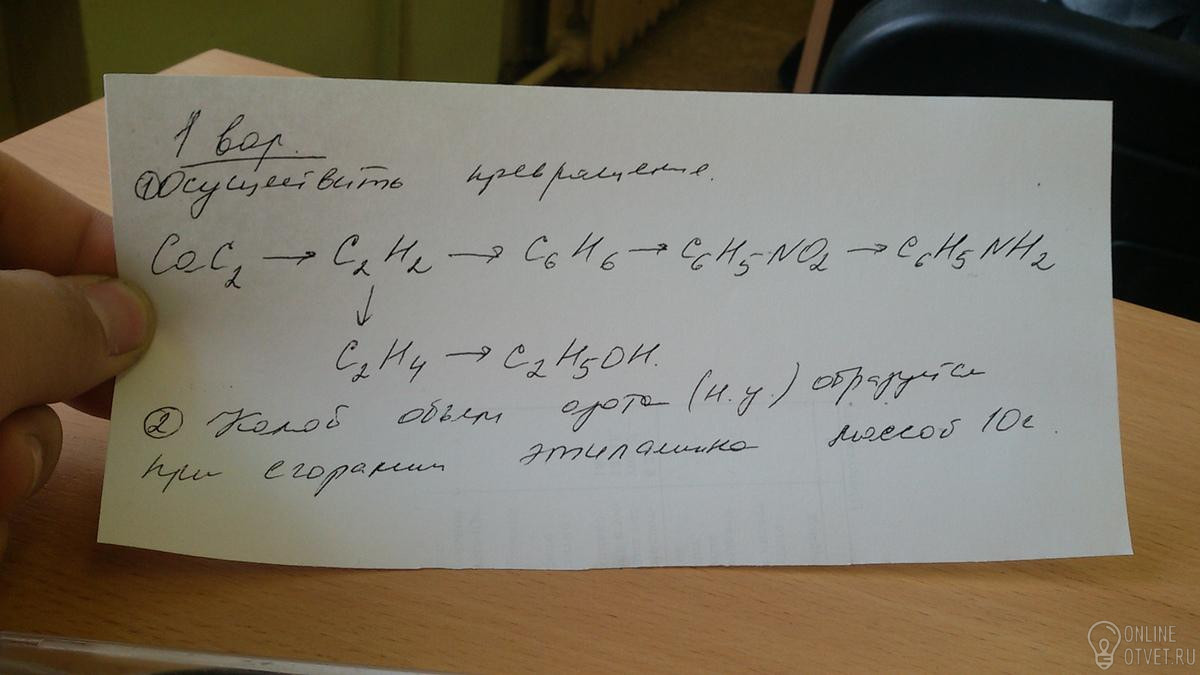 1 вар.
① Осуществить превращение.
CaC₂ → C₂H₂ → C₆H₆ → C₆H₅-NO₂ → C₆H₅NH₂
↓
C₂H₄ → C₂H₅OH.
② Какой объем азота (н.у.) образуется
при сгорании этиламина массой 10г.
ONLINE
OTVET.RU